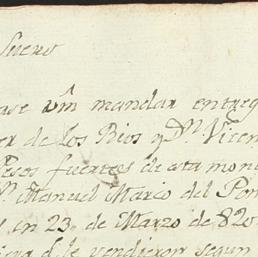 Suero
ase Vm̃ mandar entreg
er de los Rios y Dⁿ. Vicen
Pesos fuertes de ata mon
ⁿ. Manuel Mario del Pon
s en 23, de Marzo de 820
iera q.e le vendieron segun